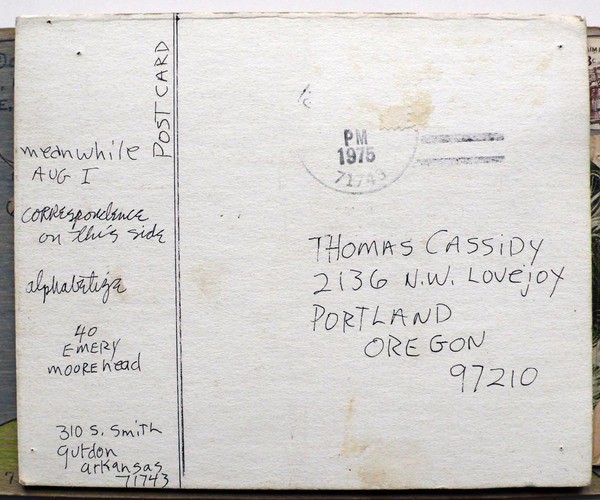 POSTCARD
meanwhile
AUG I
CORRespondence
on this side
alphabetize
40
EMERY
moorehead
310 S. Smith
gurdon
arkansas
71743
PM
1975
71743
THOMAS CASSIDY
2136 N.W. LOVEJOY
PORTLAND
OREGON
97210